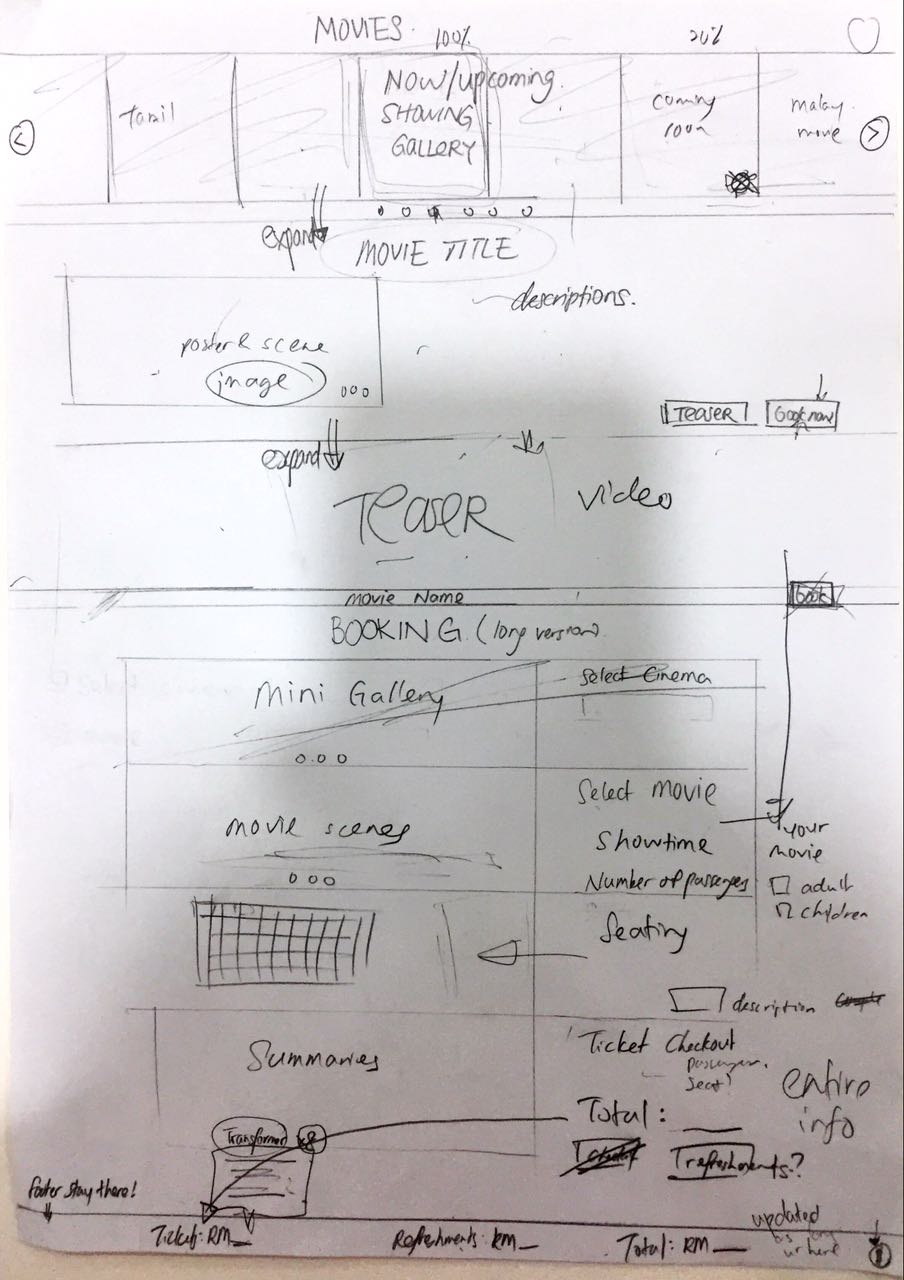 MOVIES.
100%
20%
<
Tamil
NOW/upcoming.
SHOWING
GALLERY
coming
soon
malay
movie
>
expand
MOVIE TITLE
descriptions.
poster & scene
image
TEASER
book now
expand
TEASER
Video
Movie Name
book
BOOKING. (long version)
Mini Gallery
Select Cinema
Select movie
movie scenes
Showtime
your
movie
Number of passengers
adult
children
Seating
description
Summaries
Ticket Checkout
passenger,
seat)
entire
info
Total: __
Transformer
x8
refreshments?
footer stay there!
Ticket: RM__
Refreshments: RM__
Total: RM__
updated